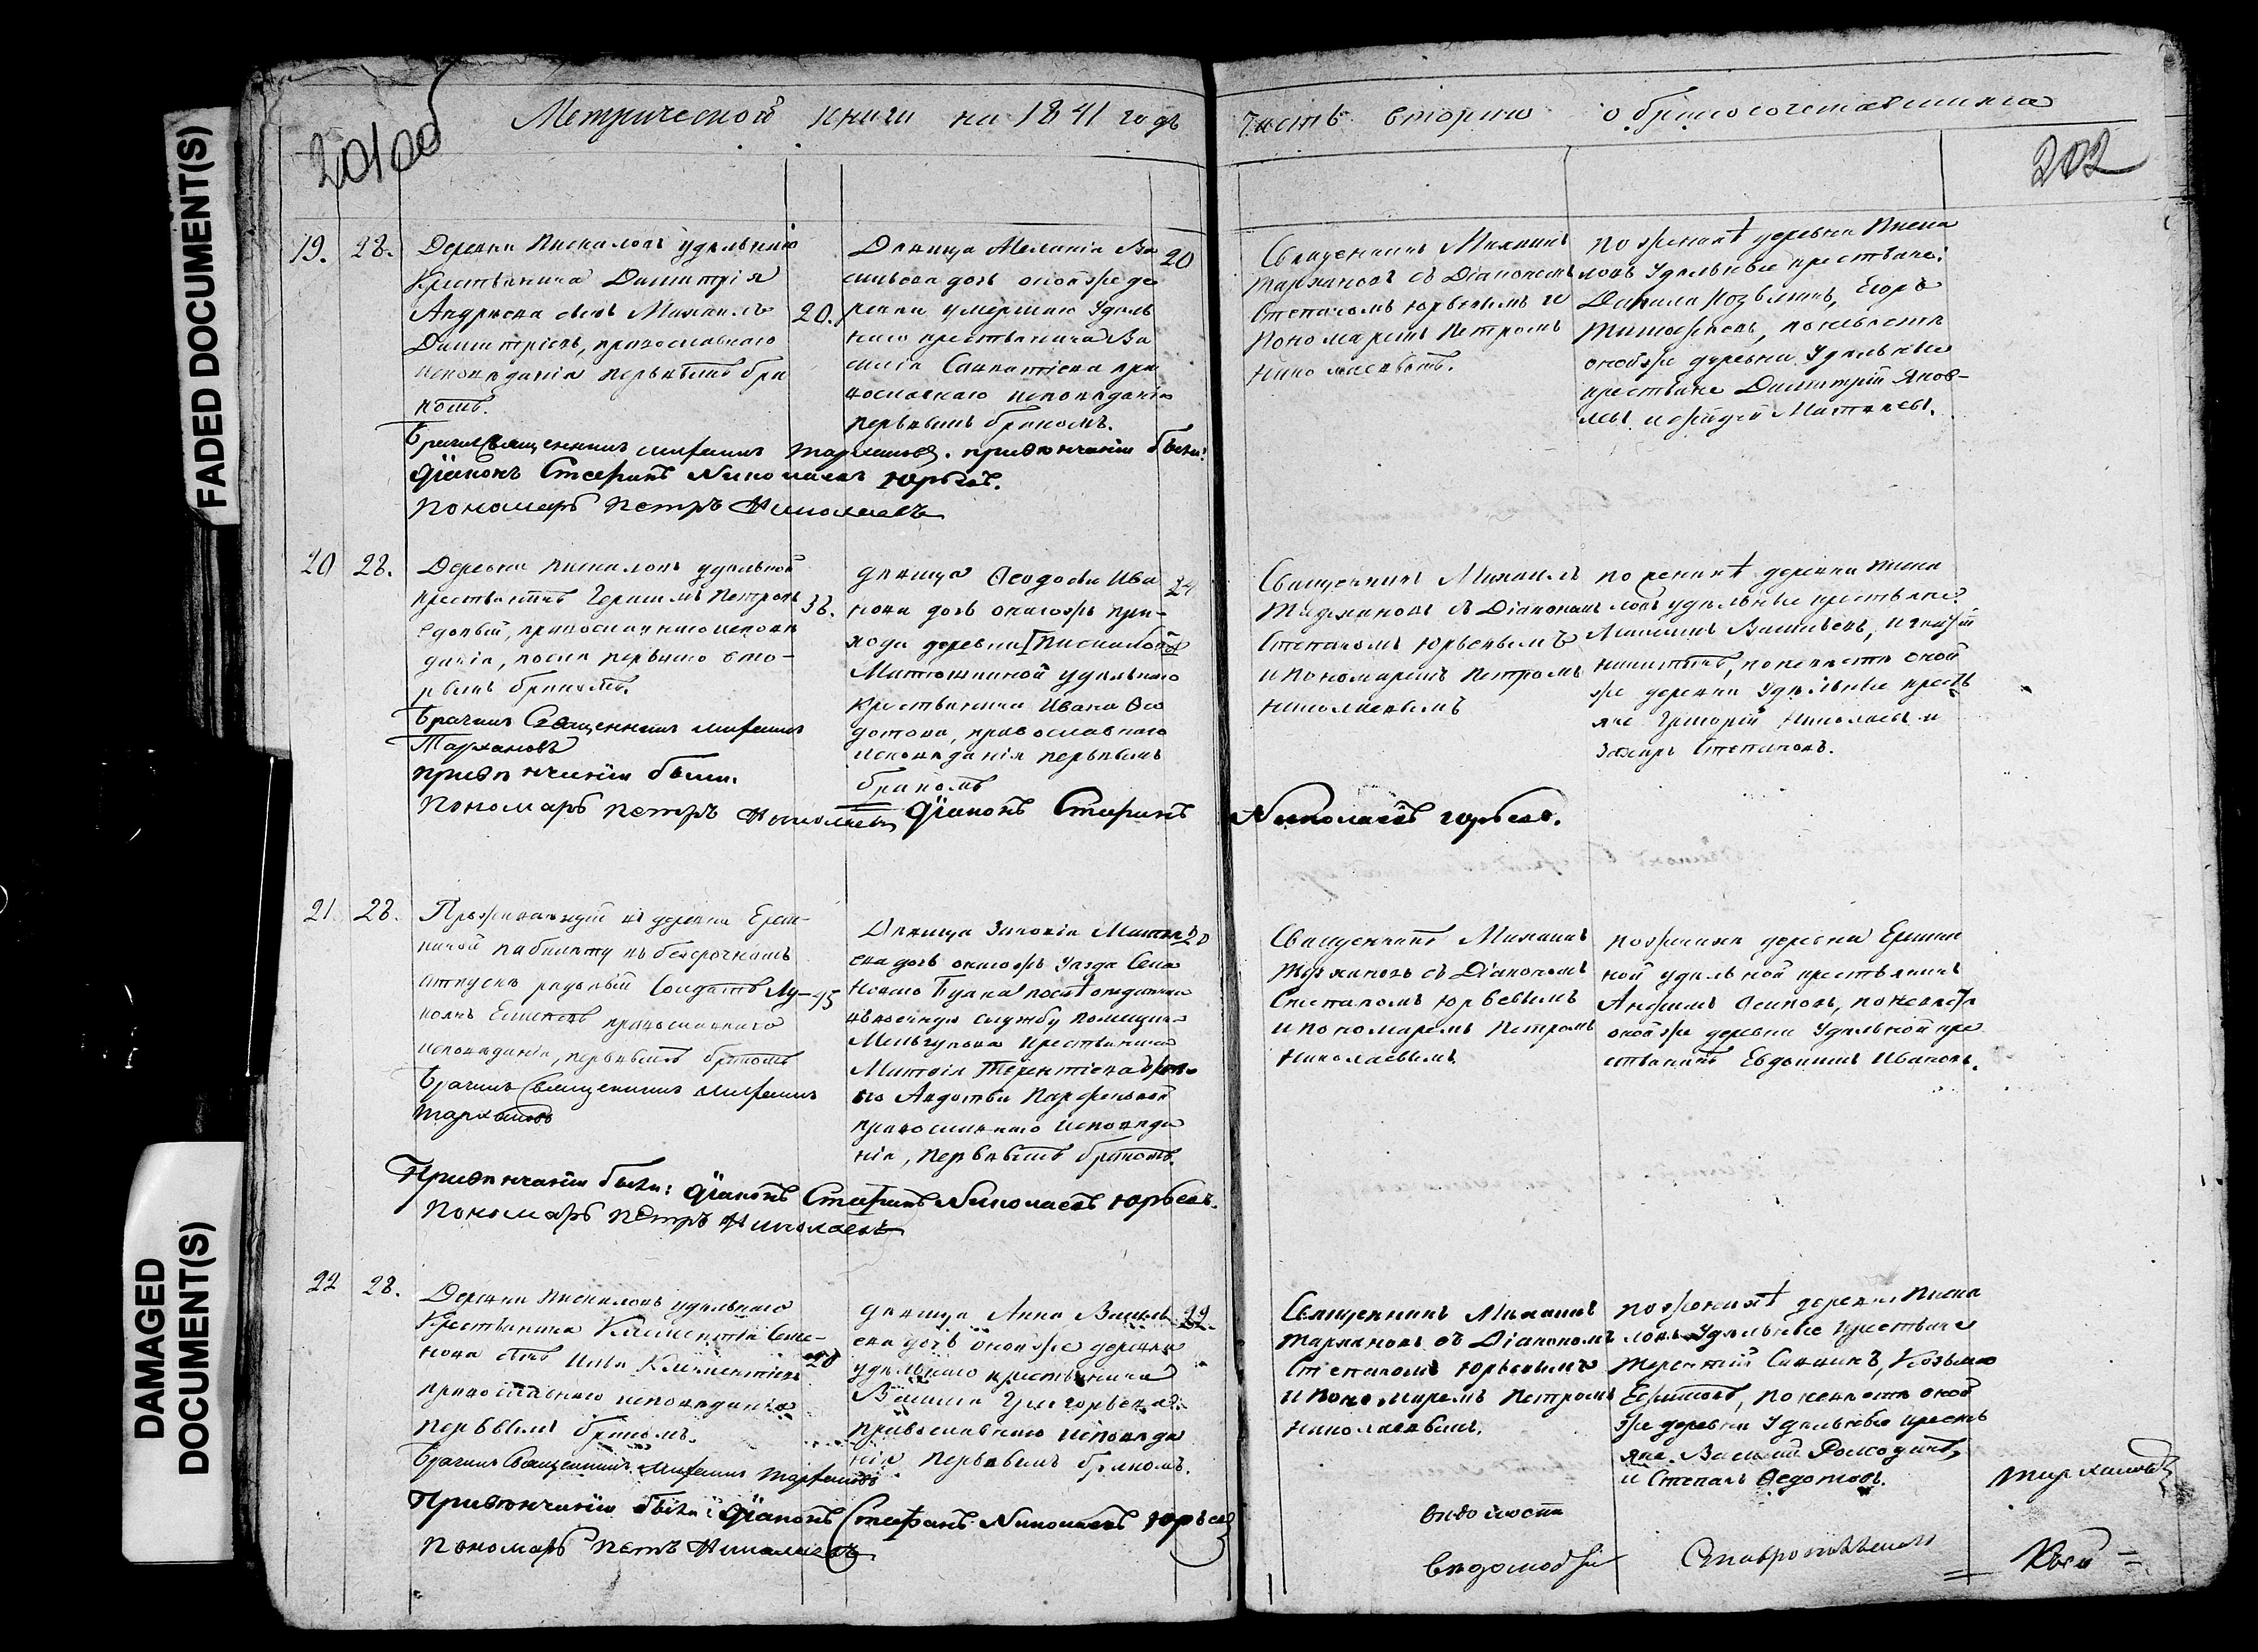 FADED DOCUMENT(S)
DAMAGED DOCUMENT(S)
201об
Метрической книги на 1841 годъ
Часть вторую о бракосочетавшихся
202
19. 28.
Деревни Пискаловъ удельнаго
Крестьянина Димитрія
Андреева сынъ Михаилъ
Димитріевъ, православнаго
исповеданія первымъ бра
комъ.
20.
Девица Меланія Ва
сильева дочь оной же де
ревни умершаго удель
наго крестьянина Ва
силія Савватіева пра
вославнаго исповеданія
первымъ бракомъ.
20
Священникъ Михаилъ
Тархановъ съ Діакономъ
Степаномъ Юрьевымъ и
Пономаремъ Петромъ
Николаевымъ.
По женихѣ деревни Писка
ловъ Удельные крестьяне:
Данила Козьминъ, Егоръ
Тимофеевъ, по невесте
оной же деревни Удельные
крестьяне Димитрій Яков-
левъ и Матвеевъ.
Брачилъ Священникъ Михаилъ Тархановъ. при венчаніи были:
Діаконъ Стефанъ Николаевъ Юрьевъ.
Пономарь Петръ Николаевъ
20 28.
Деревни Пискаловъ удельной
крестьянинъ Герасимъ Петровъ
вдовый, православнаго испове
данія, после перваго вто-
рымъ бракомъ.
38.
девица Феодосья Ива
нова дочь онагожъ при-
хода деревни Пискаловъ
Матюшкиной удельнаго
крестьянина Ивана Фео
дотова, православнаго
исповеданія первымъ
бракомъ
24
Священникъ Михаилъ
Тархановъ съ Діакономъ
Степаномъ Юрьевымъ
и Пономаремъ Петромъ
Николаевымъ
по женихѣ деревни Писка
ловъ удельные крестьяне:
Максимъ Васильевъ, Игнатій
Никитинъ, по невесте оной
же деревни Удельные кресть
яне Григорій Николаевъ и
Захаръ Степановъ.
Брачилъ Священникъ Михаилъ
Тархановъ
при венчаніи были.
Пономарь Петръ Николаевъ Діаконъ Стефанъ Николаевъ Юрьевъ.
21. 28.
Проживающій въ деревни Ерем-
киной по билету въ безсрочномъ
отпуске рядовый Солдатъ Лу-
кьянъ православнаго
исповеданія, первымъ бракомъ
45
Девица Зиновія Матве
ева дочь онагожъ уезда Села
Новаго после отданнаго
въ военную службу помещика
Мельгунова крестьянина
Матвея Терентіева
Авдотьи Парфеновой
православнаго исповеда
нія, первымъ бракомъ.
20
Священникъ Михаилъ
Тархановъ съ Діакономъ
Степаномъ Юрьевымъ
и пономаремъ Петромъ
Николаевымъ
по женихе деревни Еремки
ной удельной крестьянинъ
Анфимъ Осиповъ, по невесте
оной же деревни Удельной кре
стьянинъ Евдокимъ Ивановъ.
Брачилъ Священникъ Михаилъ
Тархановъ
При венчаніи были: Діаконъ Стефанъ Николаевъ Юрьевъ.
Пономарь Петръ Николаевъ
22 28.
Деревни Пискаловъ удельнаго
Крестьянина Климентія Семе-
нова сынъ Илья Климентіевъ
православнаго исповеданія
первымъ бракомъ.
20
девица Анна Василь
ева дочь оной же деревни
удельнаго крестьянина
Василія Григорьева
православнаго исповеда
нія первымъ бракомъ.
22.
Священникъ Михаилъ
Тархановъ съ Діакономъ
Степаномъ Юрьевымъ
и Пономаремъ Петромъ
Николаевымъ.
по женихѣ деревни Писка
ловъ Удельные крестьяне
Терентій Саввинъ, Козьма
Ефимовъ, по невесте оной
же деревни Удельные кресть
яне Василій Родіоновъ,
и Степанъ Федотовъ.
Брачилъ Священникъ Михаилъ Тархановъ
При венчаніи были: Діаконъ Стефанъ Николаевъ Юрьевъ
Пономарь Петръ Николаевъ
Тархановъ
Ставропольскаго